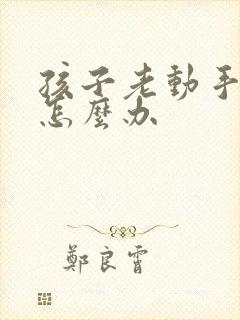 孩子老動手
怎麼办
鄭良霄